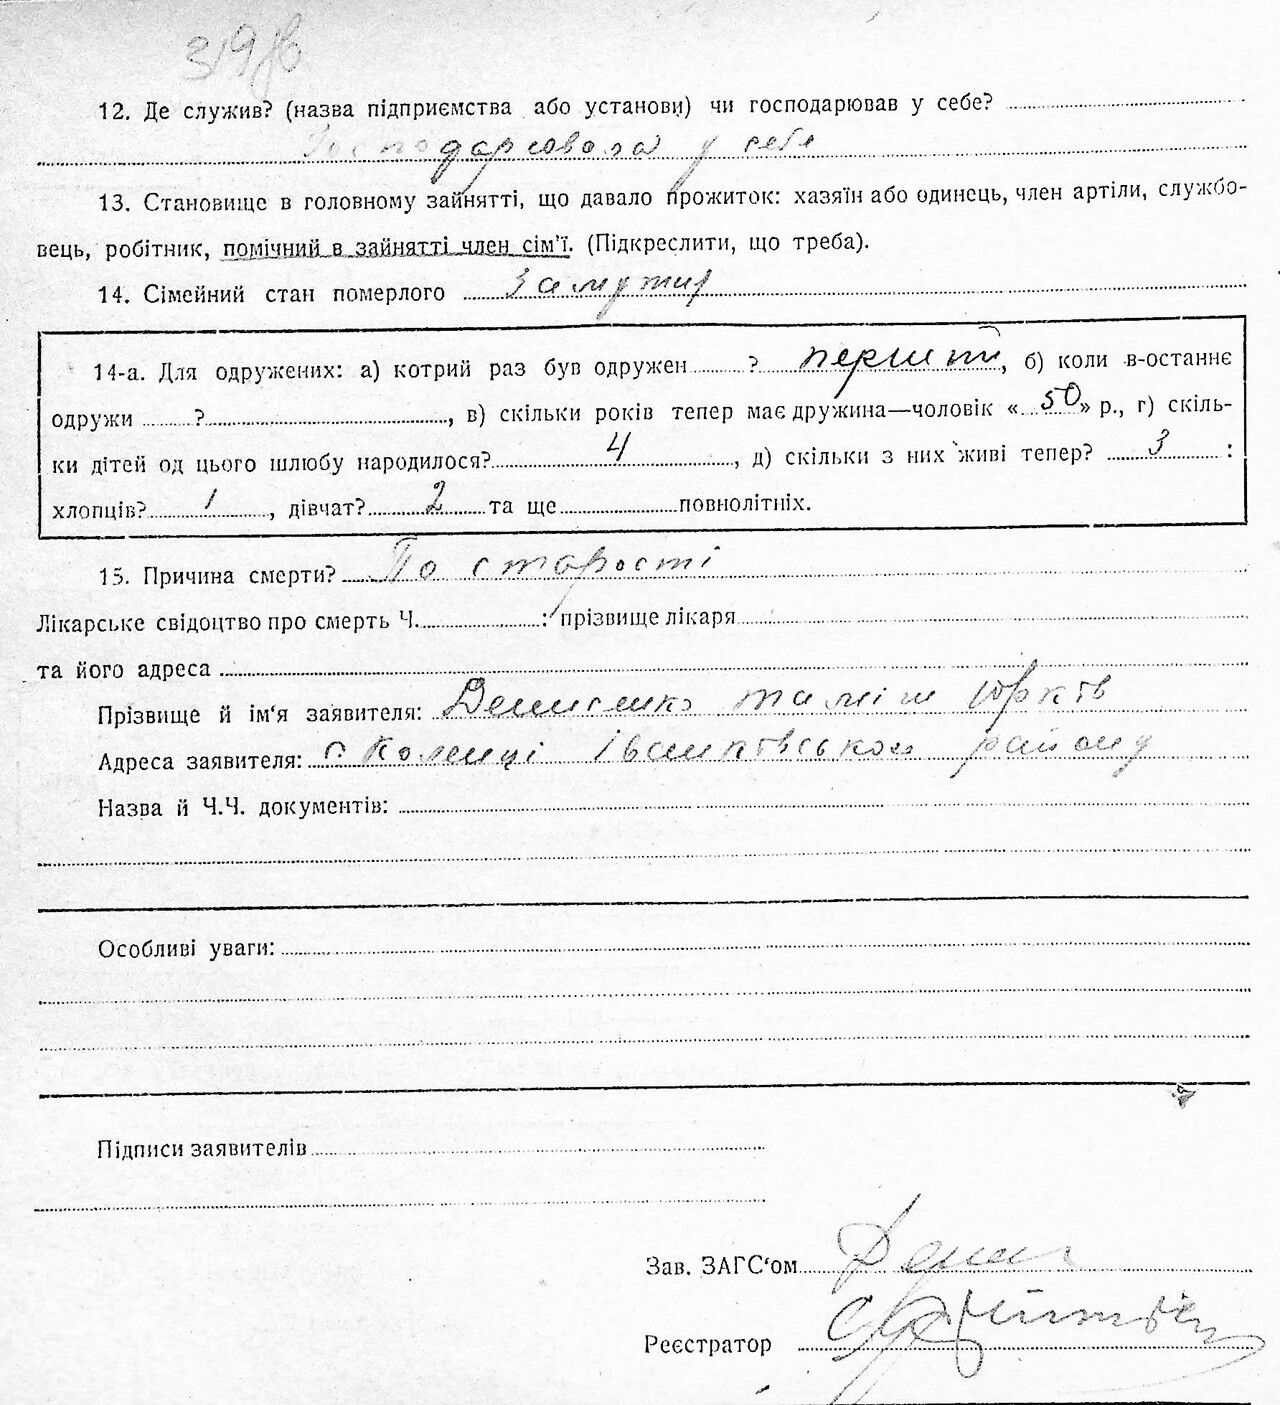 319
12. Де служив? (назва підприємства або установи) чи господарював у себе?
Господарювала у себе
13. Становище в головному зайнятті, що давало прожиток: хазяїн або одинець, член артіли, службо-
вець, робітник, помічний в зайнятті член сім'ї. (Підкреслити, що треба).
14. Сімейний стан померлого замужня
14-а. Для одружених: а) котрий раз був одружен ? перший, б) коли в-останнє
одружи ?, в) скільки років тепер має дружина—чоловік «50» р., г) скіль-
ки дітей од цього шлюбу народилося? 4, д) скільки з них живі тепер? 3 :
хлопців? 1, дівчат? 2 та ще повнолітніх.
15. Причина смерти? По старості
Лікарське свідоцтво про смерть Ч. : прізвище лікаря
та його адреса
Прізвище й ім'я заявителя: Денисенко
Адреса заявителя: с. Коленці Іванківського району
Назва й Ч.Ч. документів:
Особливі уваги:
Підписи заявителів
Зав. ЗАГС'ом
Реєстратор